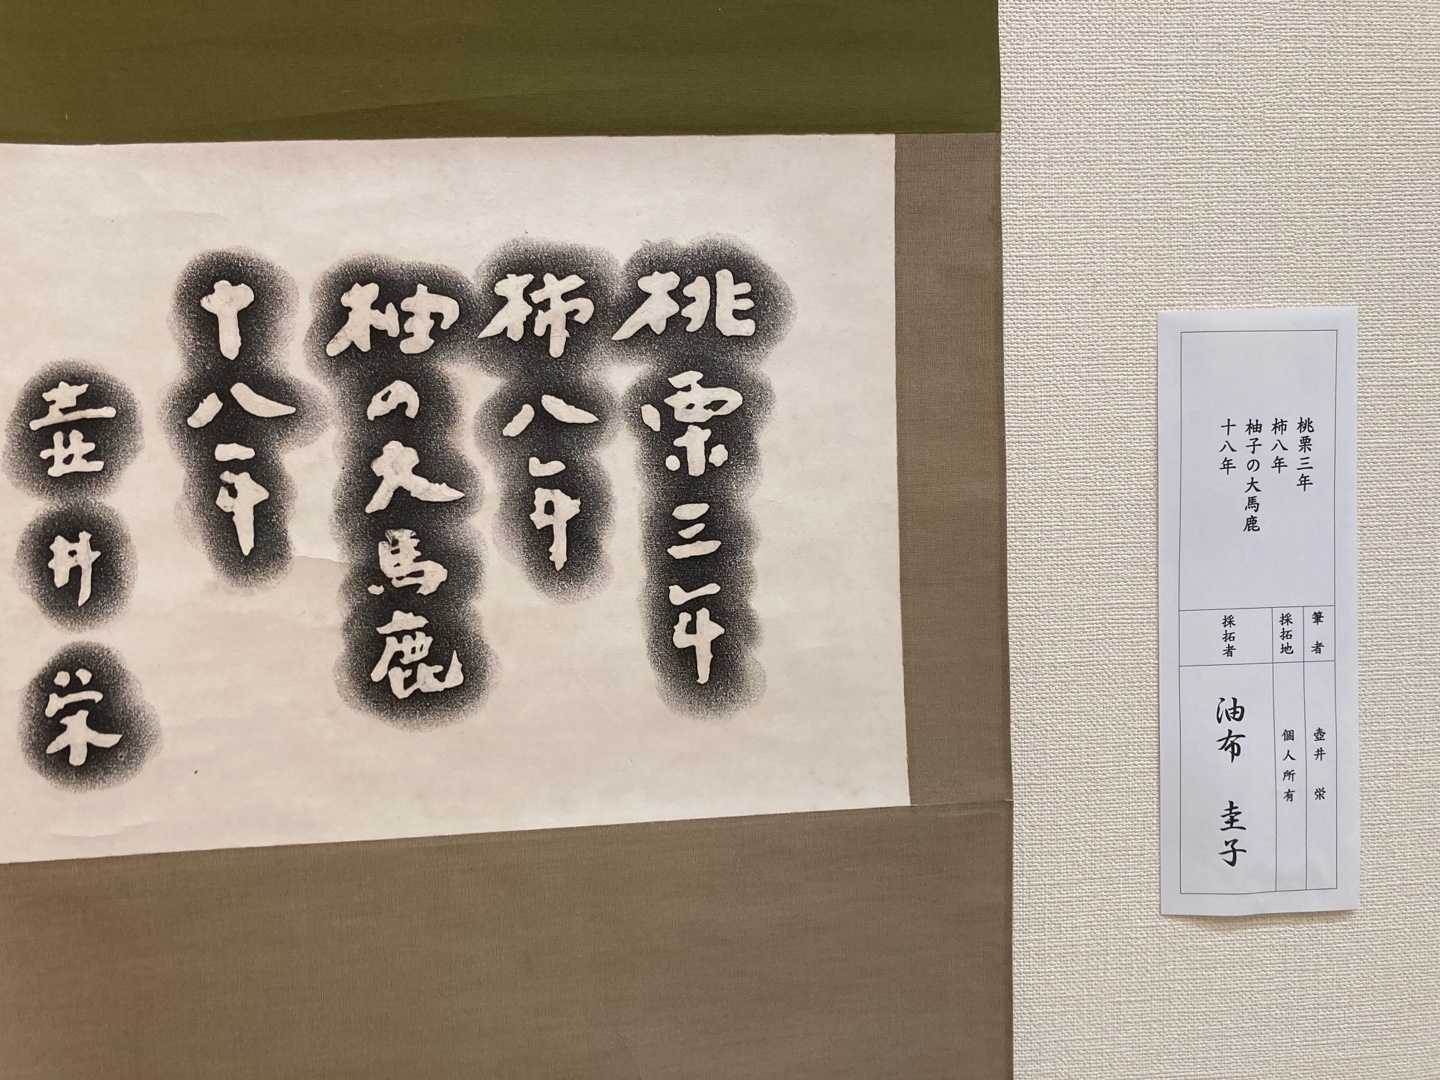 桃栗三年
柿八年
柚の大馬鹿
十八年
壷井栄
桃栗三年
柿八年
柚子の大馬鹿
十八年
筆者 壺井 栄
採拓地 個人所有
採拓者 油布 圭子